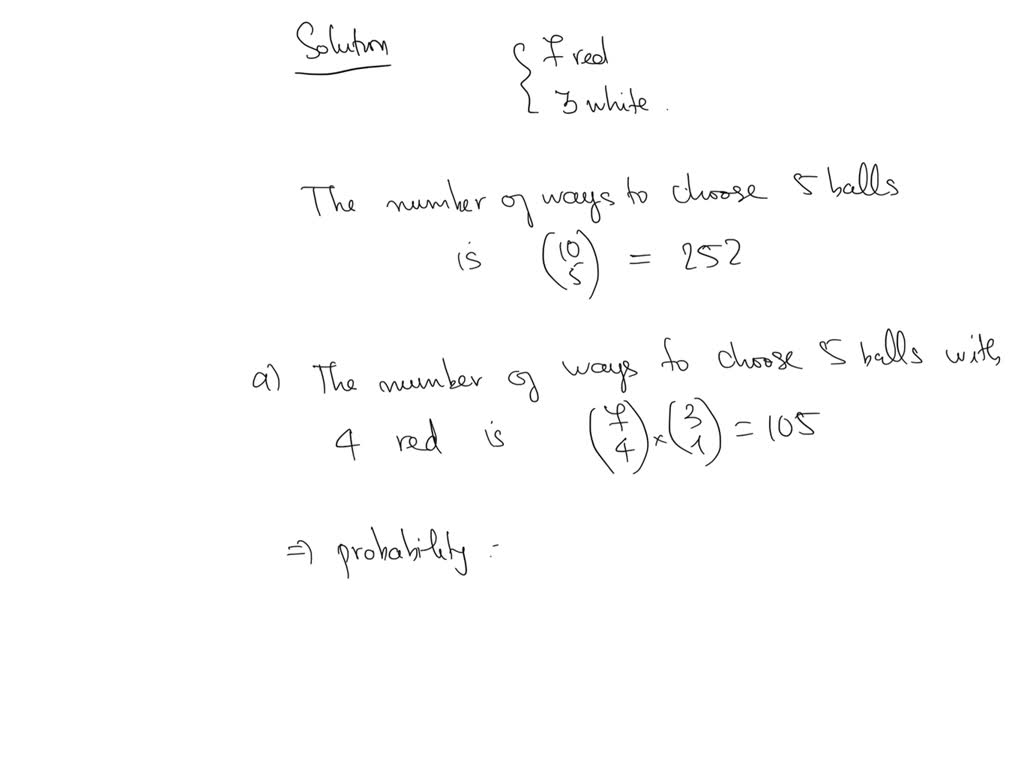 Solution
{ 7 red
3 white .
The number of ways to choose 5 balls
is (10 5) = 252
a) The number of ways to choose 5 balls with
4 red is (7 4) × (3 1) = 105
⇒ probability =